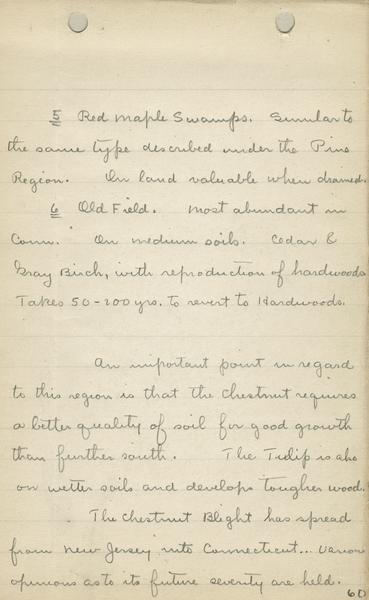 5 Red Maple Swamps. Similar to
the same type described under the Pine
Region. On land valuable when drained.
6 Old Field. Most abundant in
Conn. On medium soils. Cedar &
Gray Birch, with reproduction of hardwoods
Takes 50-200 yrs. to revert to Hardwoods.
An important point in regard
to this region is that the Chestnut requires
a better quality of soil for good growth
than further south. The Tulip is also
on wetter soils and develops tougher wood.
The Chestnut Blight has spread
from New Jersey into Connecticut... Various
opinions as to its future severity are held.
60